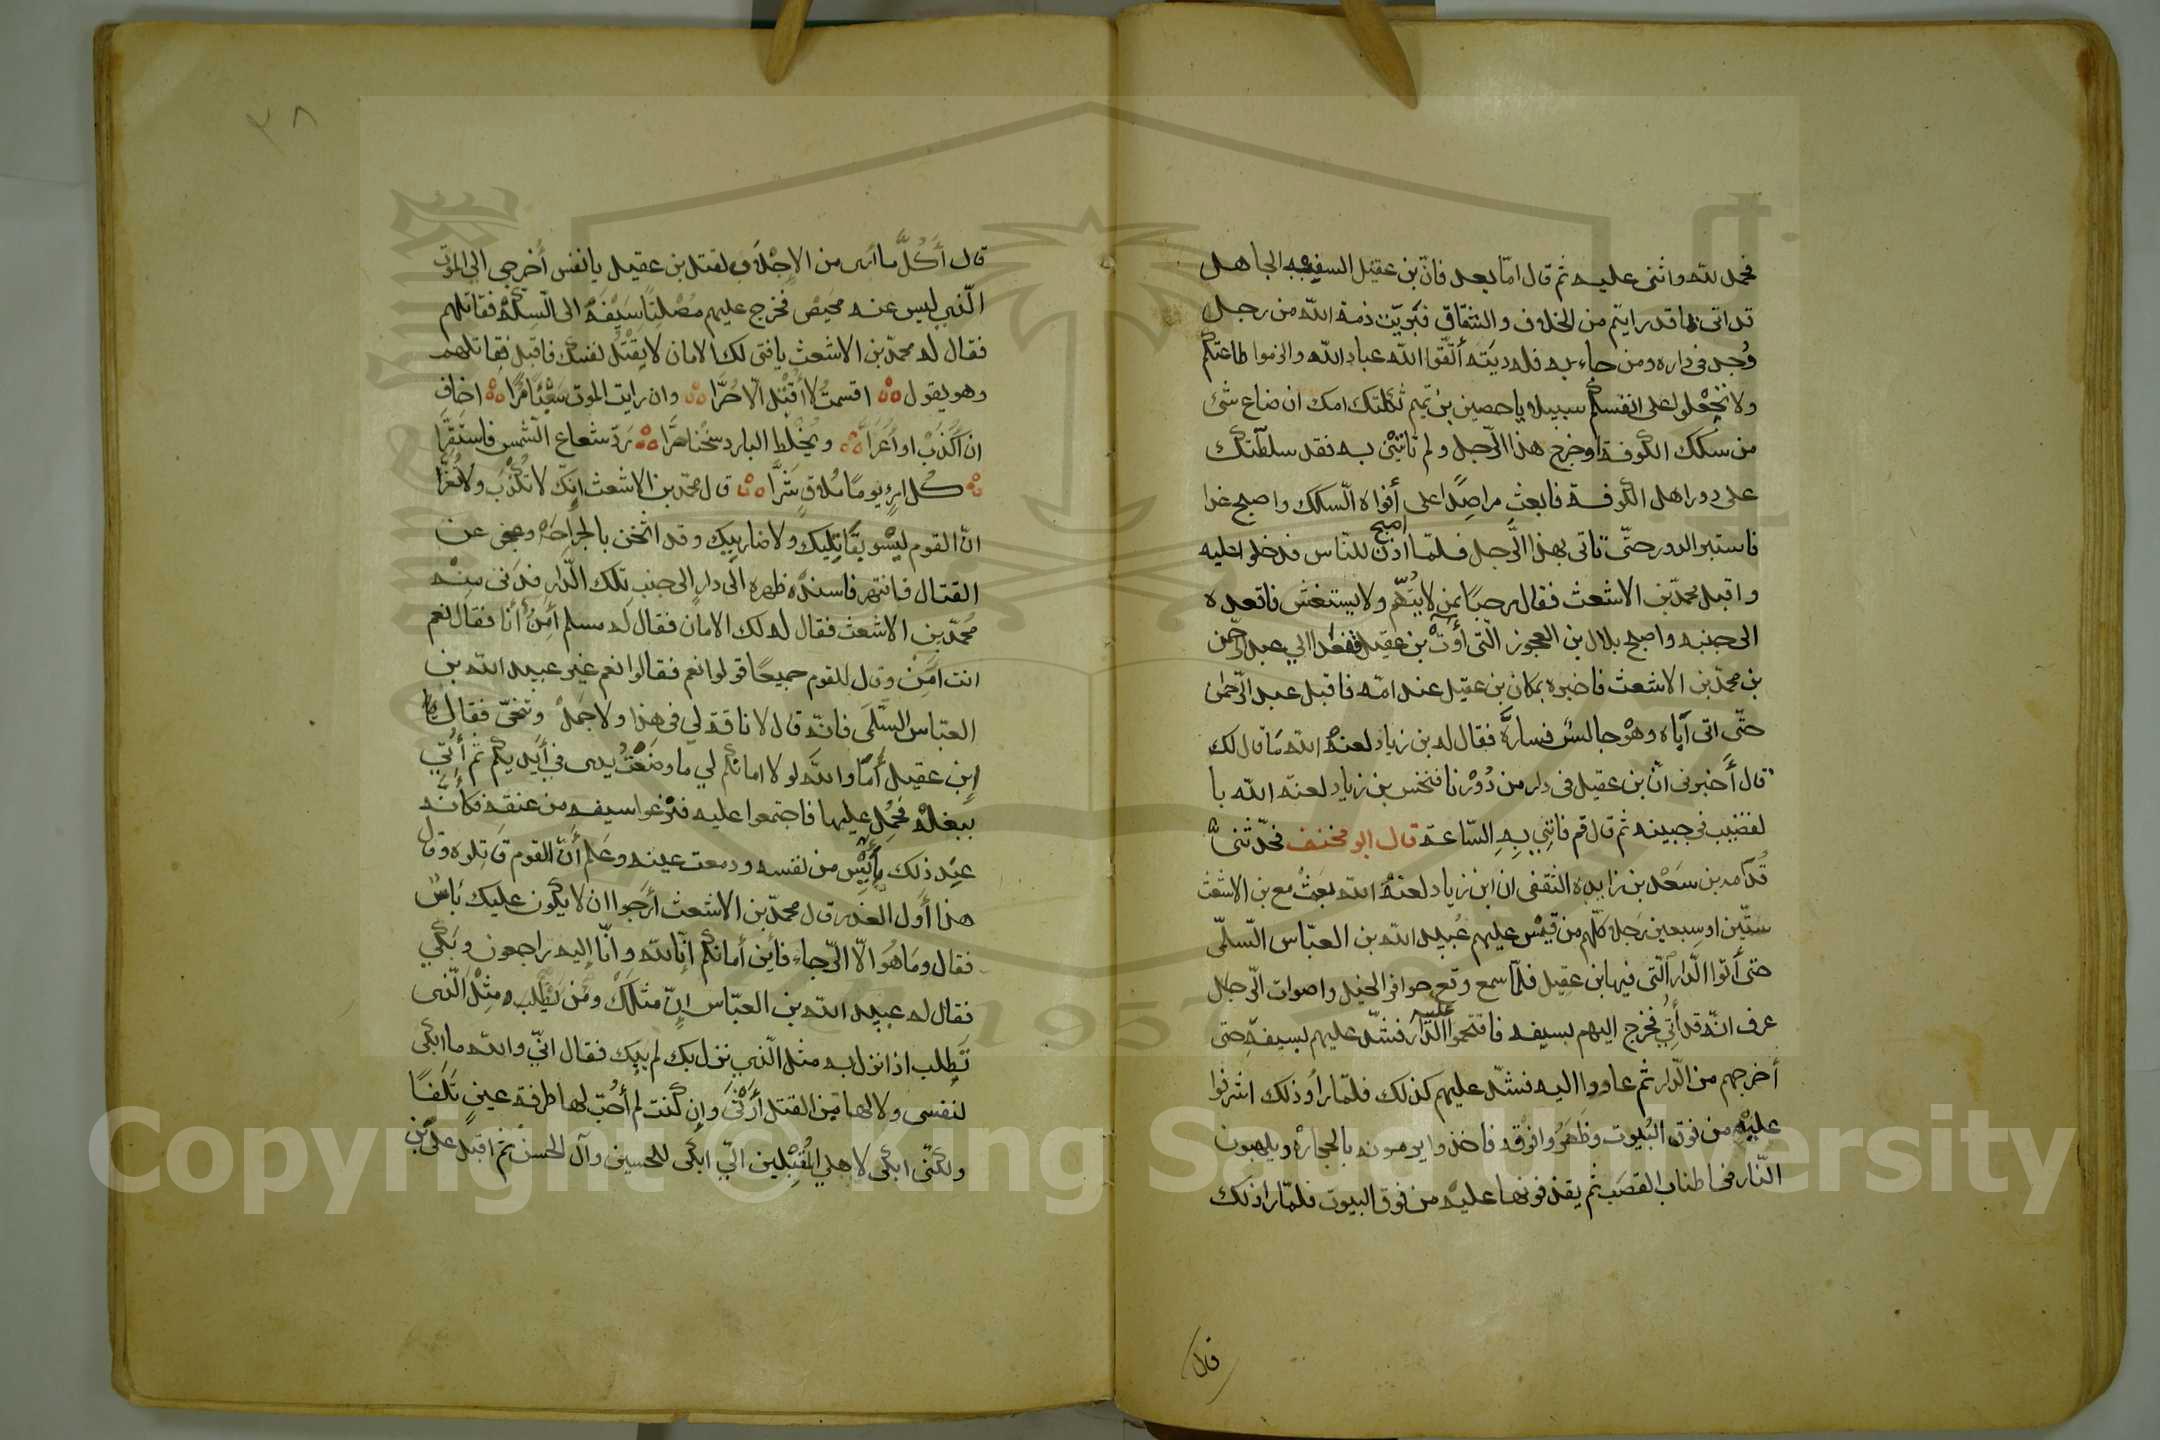 فحمد لله واثنى عليه ثم قال امّا بعد فانّ بن عقيل السفيه الجاهل
قد اتى ما قد رايتم من الخلاف والشقاق فبَريَت ذمة الله من رجل
وُجد فى داره ومن جاء به فله ديَته اتّقوا الله عباد الله والزموا طاعتكم
ولا تجعلوا على انفسكم سبيلا يا حصين بن تميم ثكلتك امك ان ضاع شئ
من سكك الكوفة او خرج هذا الرّجل ولم تاتيني به فقد سلطتك
على دور اهل الكوفة فابعث مراصِدا على أفواه السكك واصبح غدا
فاستبر الدور حتّى تاتى بهذا الرّجل فلمّا اصبح اذن للناس فدخلوا عليه
واقبل محمد بن الاشعث فقال مرحبًا بمن لا يُتّهم ولا يستغش فاقعده
الى جنبه واصبح بلال بن العجوز الّتى أوَتْ بن عقيل فغدا الي عبد الرّحمن
بن محمد بن الاشعث فاخبره بمكان بن عقيل عند امّه فاقبل عبد الرّحمن
حتّى اتى اَباه وهو جالسٌ فسارّه فقال له بن زياد لعنهُ الله ما قال لك
قال أَخبرنى انّ بن عقيل فى دار من دُوْرنا فنخس بن زياد لعنه الله با
لقضيب فى جبينه ثم قال قم فاتِني بِهِ السّاعة قال ابو مخنف فحدّثنى
قُدامه بن سَعْد بن زايده الثقفى ان ابن زياد لعنهُ الله بَعثُ مع بن الاشعث
ستّين او سبعين رَجلا كلّهم من قَيْس عليهم عُبيد الله بن العبّاس السّلمّى
حتى أتوا الدّار الّتى فيها بن عقيل فلمّا سمع وقع حوافر الخيل واصوات الرّجال
عرف انّه قد أتى فخرج اليهم بسيفه فاقتحموا عليه الدّار فشدّ عليهم بسيفهِ حتى
أخرجهم من الدّار ثم عادوا اليه فشدّ عليهم كذلك فلمّا راوْ ذلك اشرفوا
عليه من فوق البُيوت وظَهَرُوا فوْقه فاخذوا يرمونه بالحجارة ويلهبون
النّار فى اطناب القصَب ثم يقذفونها عليه من فوق البيوت فلمّا را ذلك
قال
٣٨
قال أَكُلَّ ما ارى من الاِجْلاب لقتل بن عقيل يا نفس أخرجى الى الموت
الّذي ليس عنه محيصْ فخرج عليهم مُصْلِتًا سَيْفَهُ الى السِكّة فقاتلهم
فقال له محمد بن الاشعث يا فتى لك الامان لا تقتُل نفسك فاقبل فقاتلهم
وهو يقول اقسمتُ لا أُقتَل الّا حُرًّا وان رايت الموت شَيْئًا مُرًّا اخاف
ان أُكذَبْ او أُغَرَّا ويُخْلَط البارد سُخنا مُرًّا رَدّ شعاع الشّمس فاسْتَقَرَّا
كُل امرِءٍ يومًا ملاقٍ شَرَّا قال محمد بن الاشعث اِنّك لا تُكذَب ولا تُغَرّا
انّ القوم ليسو بقَاتِليك ولا ضاربيك وقد اثخن بالجراحَة وعجز عن
القتال فانتهر فاسندَه ظهره الى دارٍ الى جنب تلك الدّار فدنى منه
محمّد بن الاشعث فقال له لك الامان فقال له مسلم آمنٌ أنا فقال نعم
انت آمن وقال للقوم جميعًا قولوا نعم فقالوا نعم غير عبيد الله بن
العبّاس السُّلَمى فانّه قال لا ناقة لي فى هذا ولا جَملْ وتنحّى فقال
ابن عقيل أَمَا والله لولا امانكم لي ما وضعْتُ يدى في أيديكم ثم أُتي
ببغلةٍ فحُمِل عليها فاجتمعوا عليه فنزعوا سيفه من عنقه فكأَنَّه
عند ذلك يأيس من نفسه ودمعت عينه وعَلم أَنّ القوم قَاتِلوه وقال
هذا أوَل الغدر قال محمّد بن الاشعث أرَجوا ان لا يكون عليك بَاسٌ
فقال ومَا هُوَ الّا الرّجاء فأين أمانكم اِنّا لله وانّا إليه راجعون وبَكَي
فقال له عبيد الله بن العبّاس إنّ مثلَكْ ومَن يَطلب ومِثْل الّذى
تَطلب اذا نزل به مثل الّذي نزل بك لم يبك فقال انّي والله ما ابكى
لنفسى ولا لها من القتل أَرْثى وان كنت لم أُحُبّ لها طرفة عينٍ تَلَفًا
ولكنّى ابكى لاهلي المُقبِلين اليّ ابكى للحسين وآل الحسن ثم اقبل على بن
Copyright © King Saud University
1957